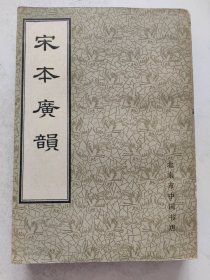 宋本廣韻
北京市中国书店